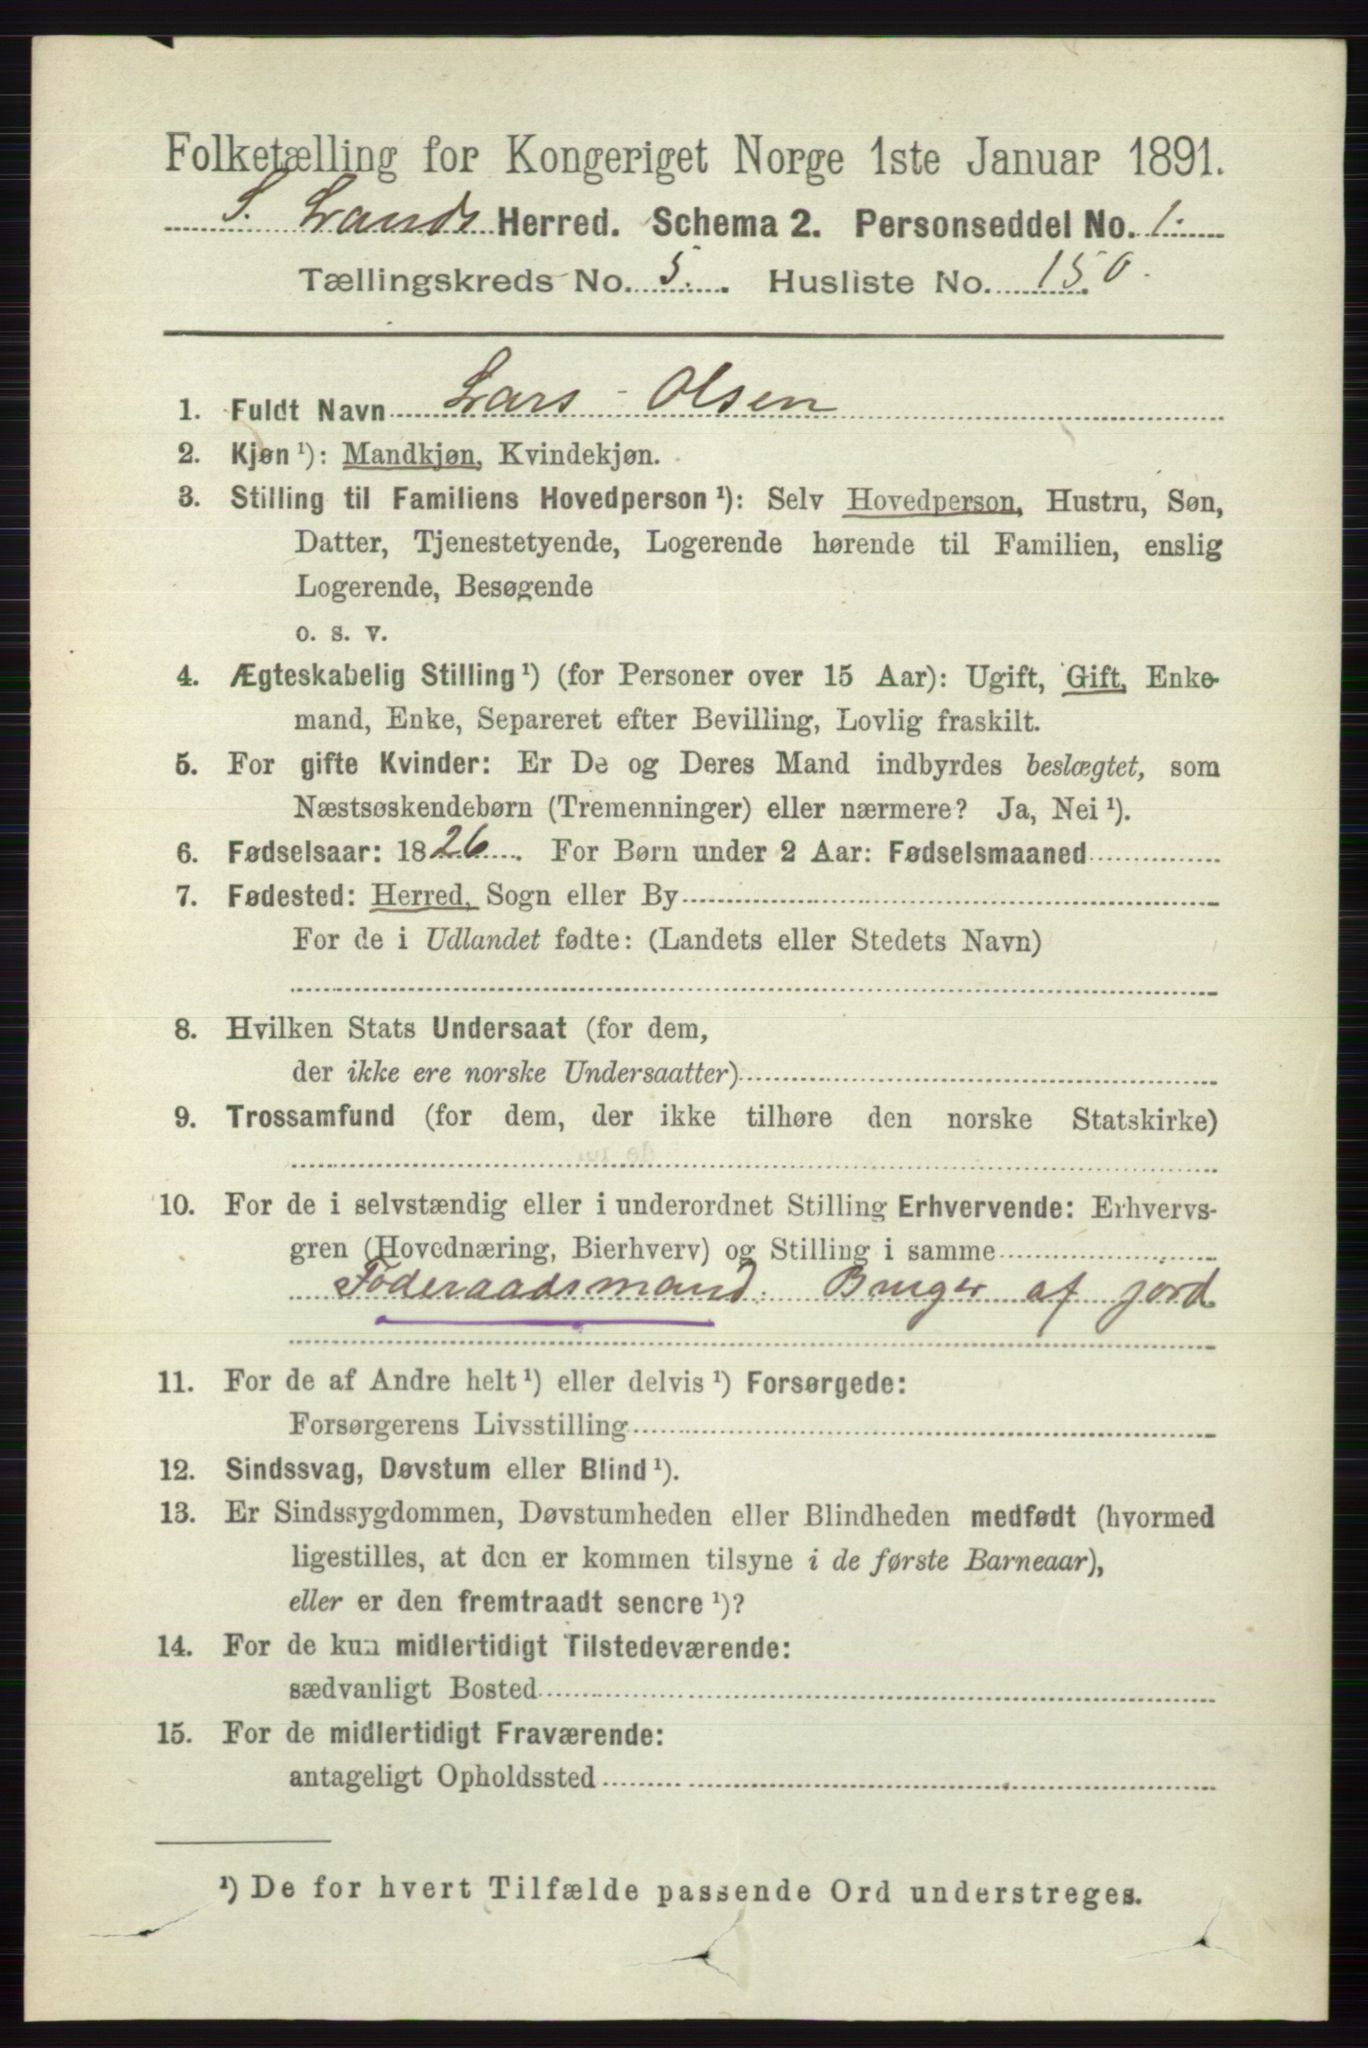 Folketælling for Kongeriget Norge 1ste Januar 1891.
S. Lands Herred. Schema 2. Personseddel No. 1.
Tællingskreds No. 5. Husliste No. 150.
1. Fuldt Navn Lars Olsen
2. Kjøn ¹): Mandkjøn, Kvindekjøn.
3. Stilling til Familiens Hovedperson ¹): Selv Hovedperson, Hustru, Søn,
Datter, Tjenestetyende, Logerende hørende til Familien, enslig
Logerende, Besøgende
o. s. v.
4. Ægteskabelig Stilling ¹) (for Personer over 15 Aar): Ugift, Gift, Enke-
mand, Enke, Separeret efter Bevilling, Lovlig fraskilt.
5. For gifte Kvinder: Er De og Deres Mand indbyrdes beslægtet, som
Næstsøskendebørn (Tremenninger) eller nærmere? Ja, Nei ¹).
6. Fødselsaar: 1826. For Børn under 2 Aar: Fødselsmaaned
7. Fødested: Herred, Sogn eller By
For de i Udlandet fødte: (Landets eller Stedets Navn)
8. Hvilken Stats Undersaat (for dem,
der ikke ere norske Undersaatter)
9. Trossamfund (for dem, der ikke tilhøre den norske Statskirke)
10. For de i selvstændig eller i underordnet Stilling Erhvervende: Erhvervs-
gren (Hovednæring, Bierhverv) og Stilling i samme
Föderaadsmand. Bruger af jord
11. For de af Andre helt ¹) eller delvis ¹) Forsørgede:
Forsørgerens Livsstilling
12. Sindssvag, Døvstum eller Blind ¹).
13. Er Sindssygdommen, Døvstumheden eller Blindheden medfødt (hvormed
ligestilles, at den er kommen tilsyne i de første Barneaar),
eller er den fremtraadt senere ¹)?
14. For de kun midlertidigt Tilstedeværende:
sædvanligt Bosted
15. For de midlertidigt Fraværende:
antageligt Opholdssted
¹) De for hvert Tilfælde passende Ord understreges.